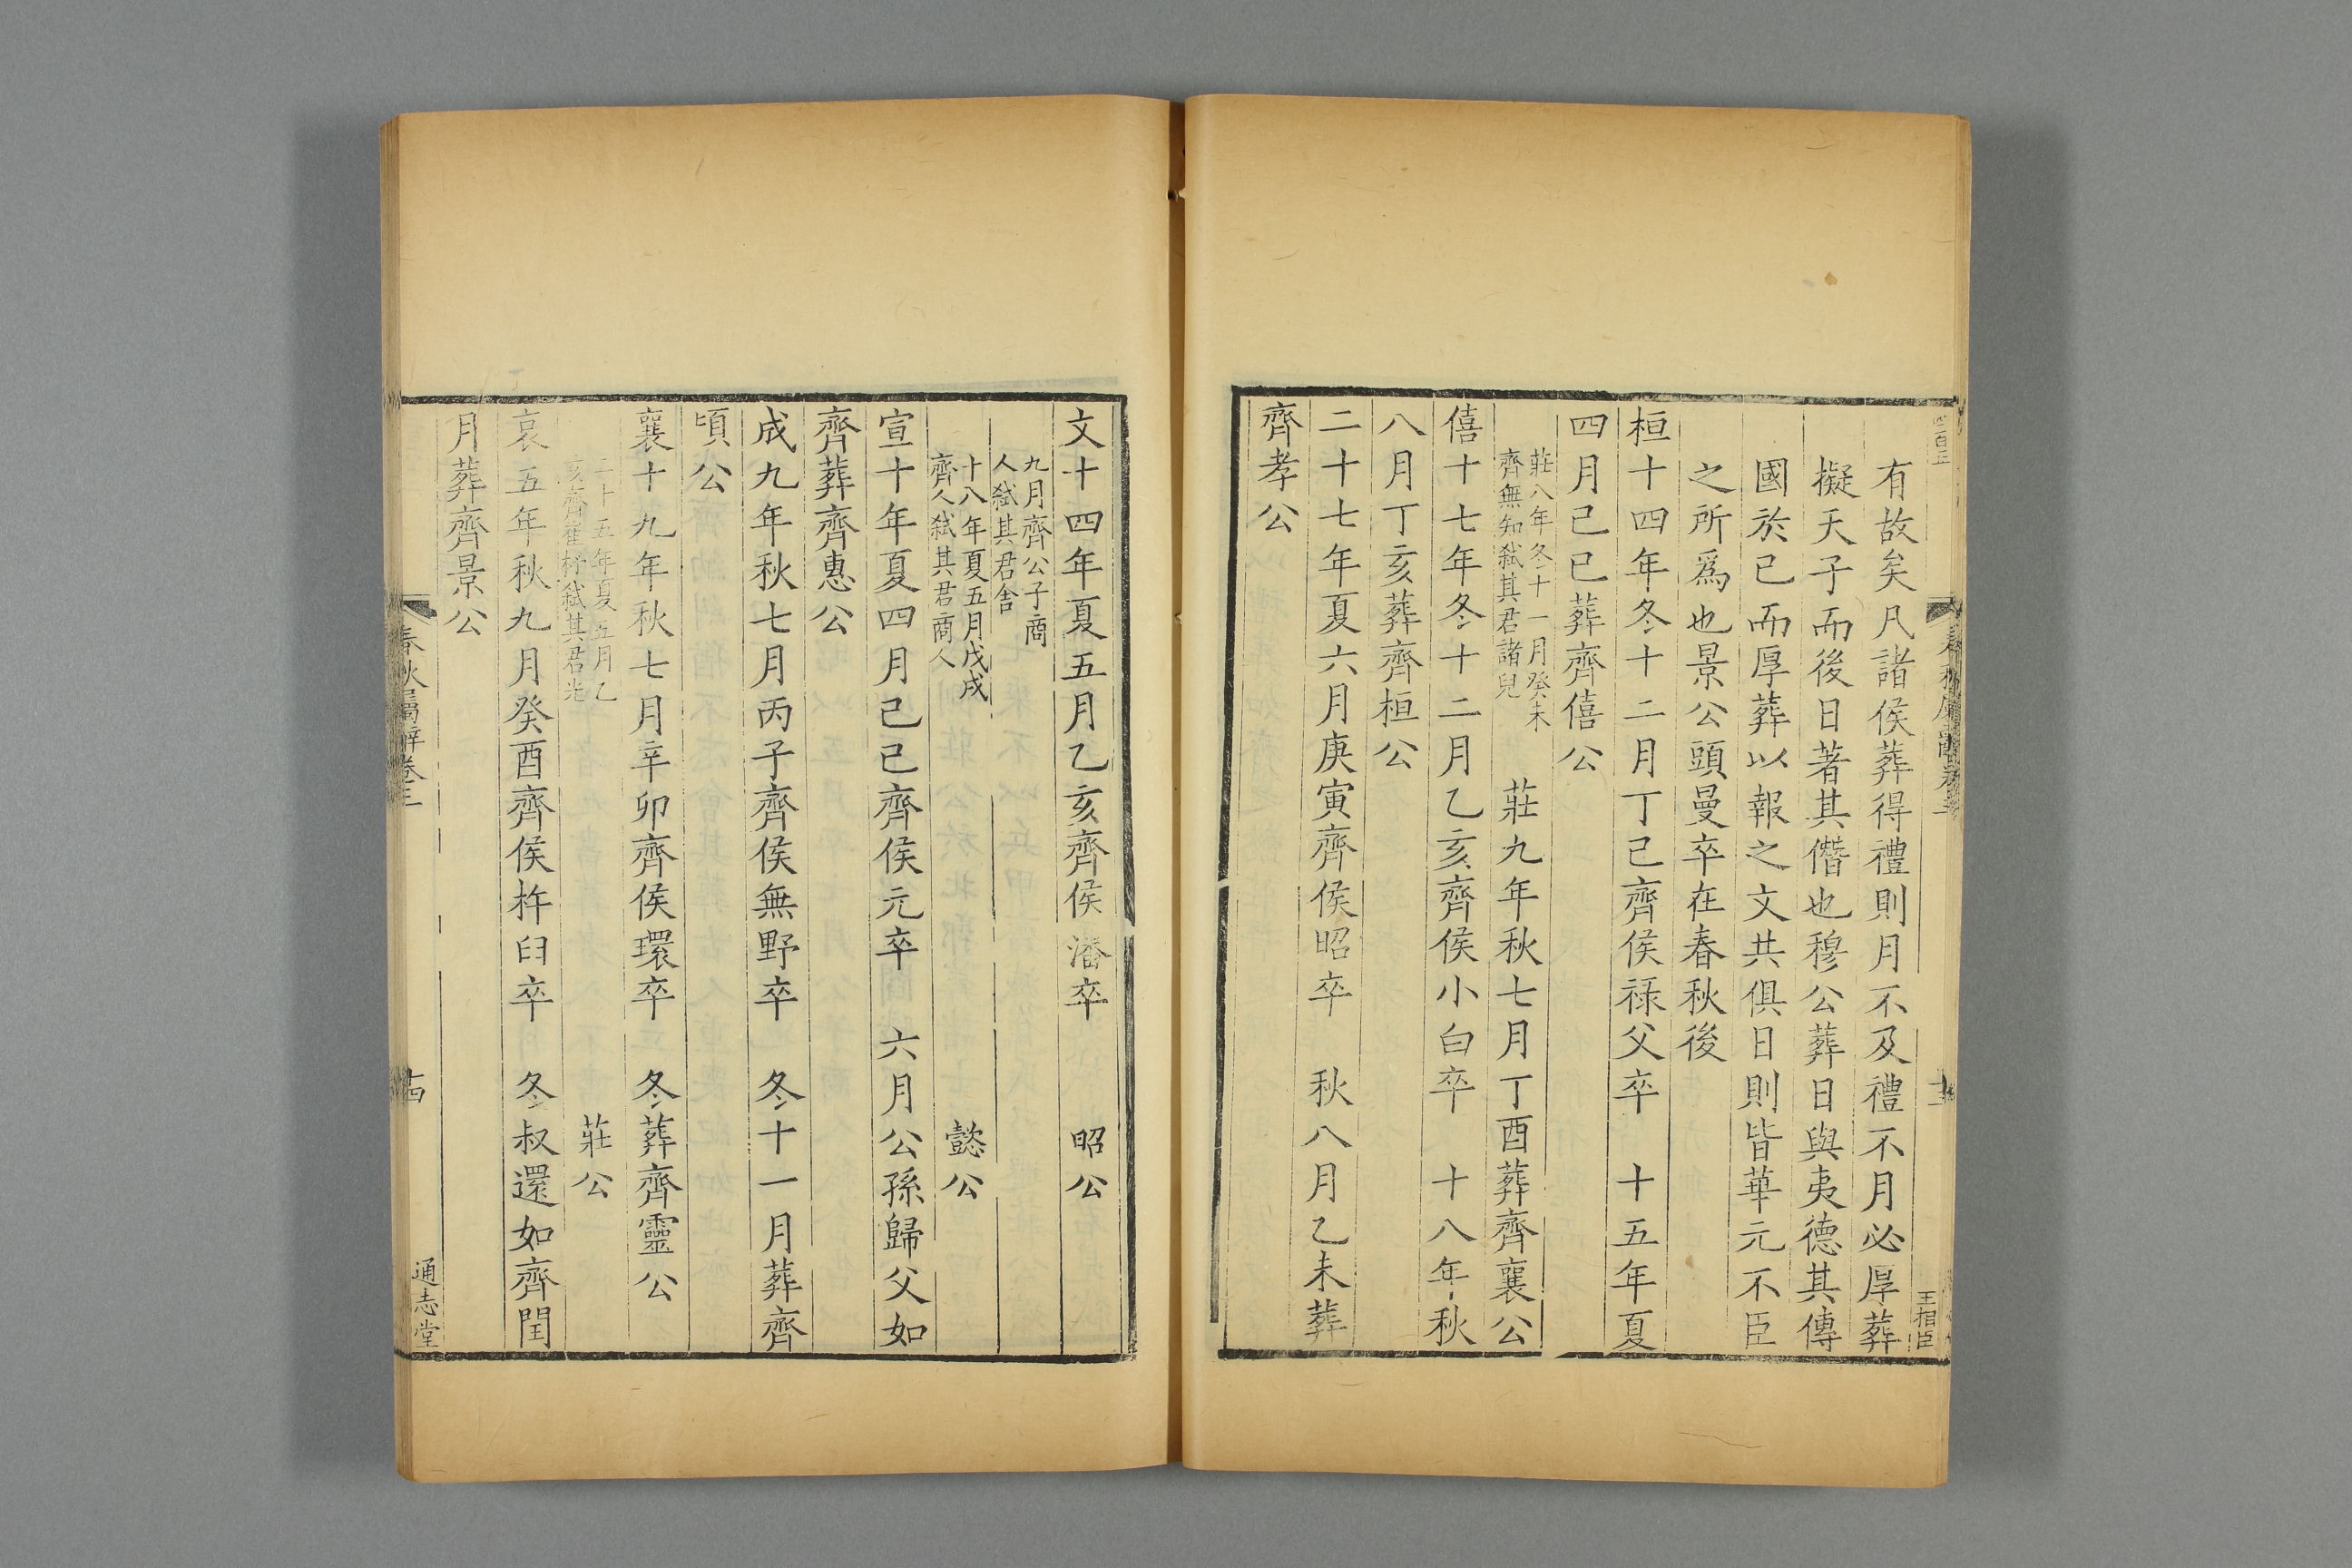 春秋屬辭卷三
王相臣
有故矣凡諸侯葬得禮則月不及禮不月必厚葬
擬天子而後日著其僭也穆公葬日與夷德其傳
國於已而厚葬以報之文共俱日則皆華元不臣
之所爲也景公頭曼卒在春秋後
桓十四年冬十二月丁已齊侯禄父卒　十五年夏
四月己巳葬齊僖公
莊八年冬十一月癸未
齊無知弑其君諸兒
莊九年秋七月丁酉葬齊襄公
僖十七年冬十二月乙亥齊侯小白卒　十八年秋
八月丁亥葬齊桓公
二十七年夏六月庚寅齊侯昭卒　秋八月乙未葬
齊孝公
文十四年夏五月乙亥齊侯潘卒　昭公
九月齊公子商
人弑其君舍
十八年夏五月戊戌
齊人弑其君商人
懿公
宣十年夏四月己巳齊侯元卒　六月公孫歸父如
齊葬齊惠公
成九年秋七月丙子齊侯無野卒　冬十一月葬齊
頃公
襄十九年秋七月辛卯齊侯環卒　冬葬齊靈公
二十五年夏五月乙
亥齊崔杼弑其君光
莊公
哀五年秋九月癸酉齊侯杵臼卒　冬叔還如齊閏
月葬齊景公
春秋屬辭卷三
十四
通志堂